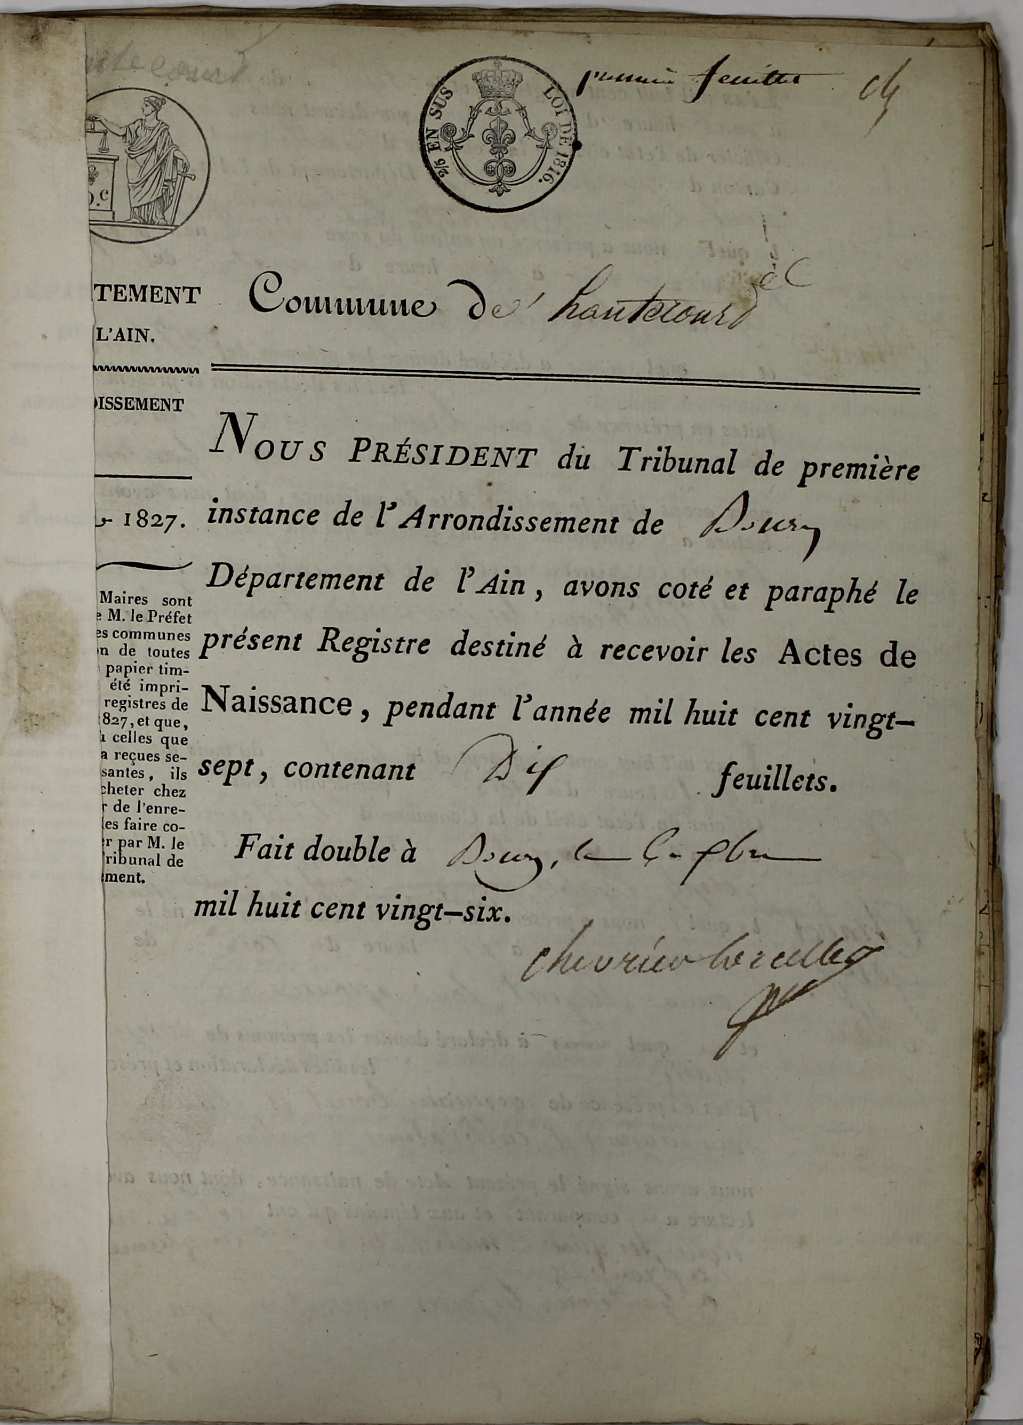 premier feuillet
2/5 EN SUS
LOI DE 1816.
TEMENT
L'AIN.
DISSEMENT
1827.
Maires sont
e M. le Préfet
es communes
n de toutes
papier tim-
été impri-
registres de
827, et que,
celles que
a reçues se-
santes, ils
cheter chez
r de l'enre-
les faire co-
r par M. le
ribunal de
ment.
Commune de hautecour
NOUS PRÉSIDENT du Tribunal de première
instance de l'Arrondissement de Bourg
Département de l'Ain, avons coté et paraphé le
présent Registre destiné à recevoir les Actes de
Naissance, pendant l'année mil huit cent vingt-
sept, contenant Dix feuillets.
Fait double à Bourg, le
mil huit cent vingt-six.